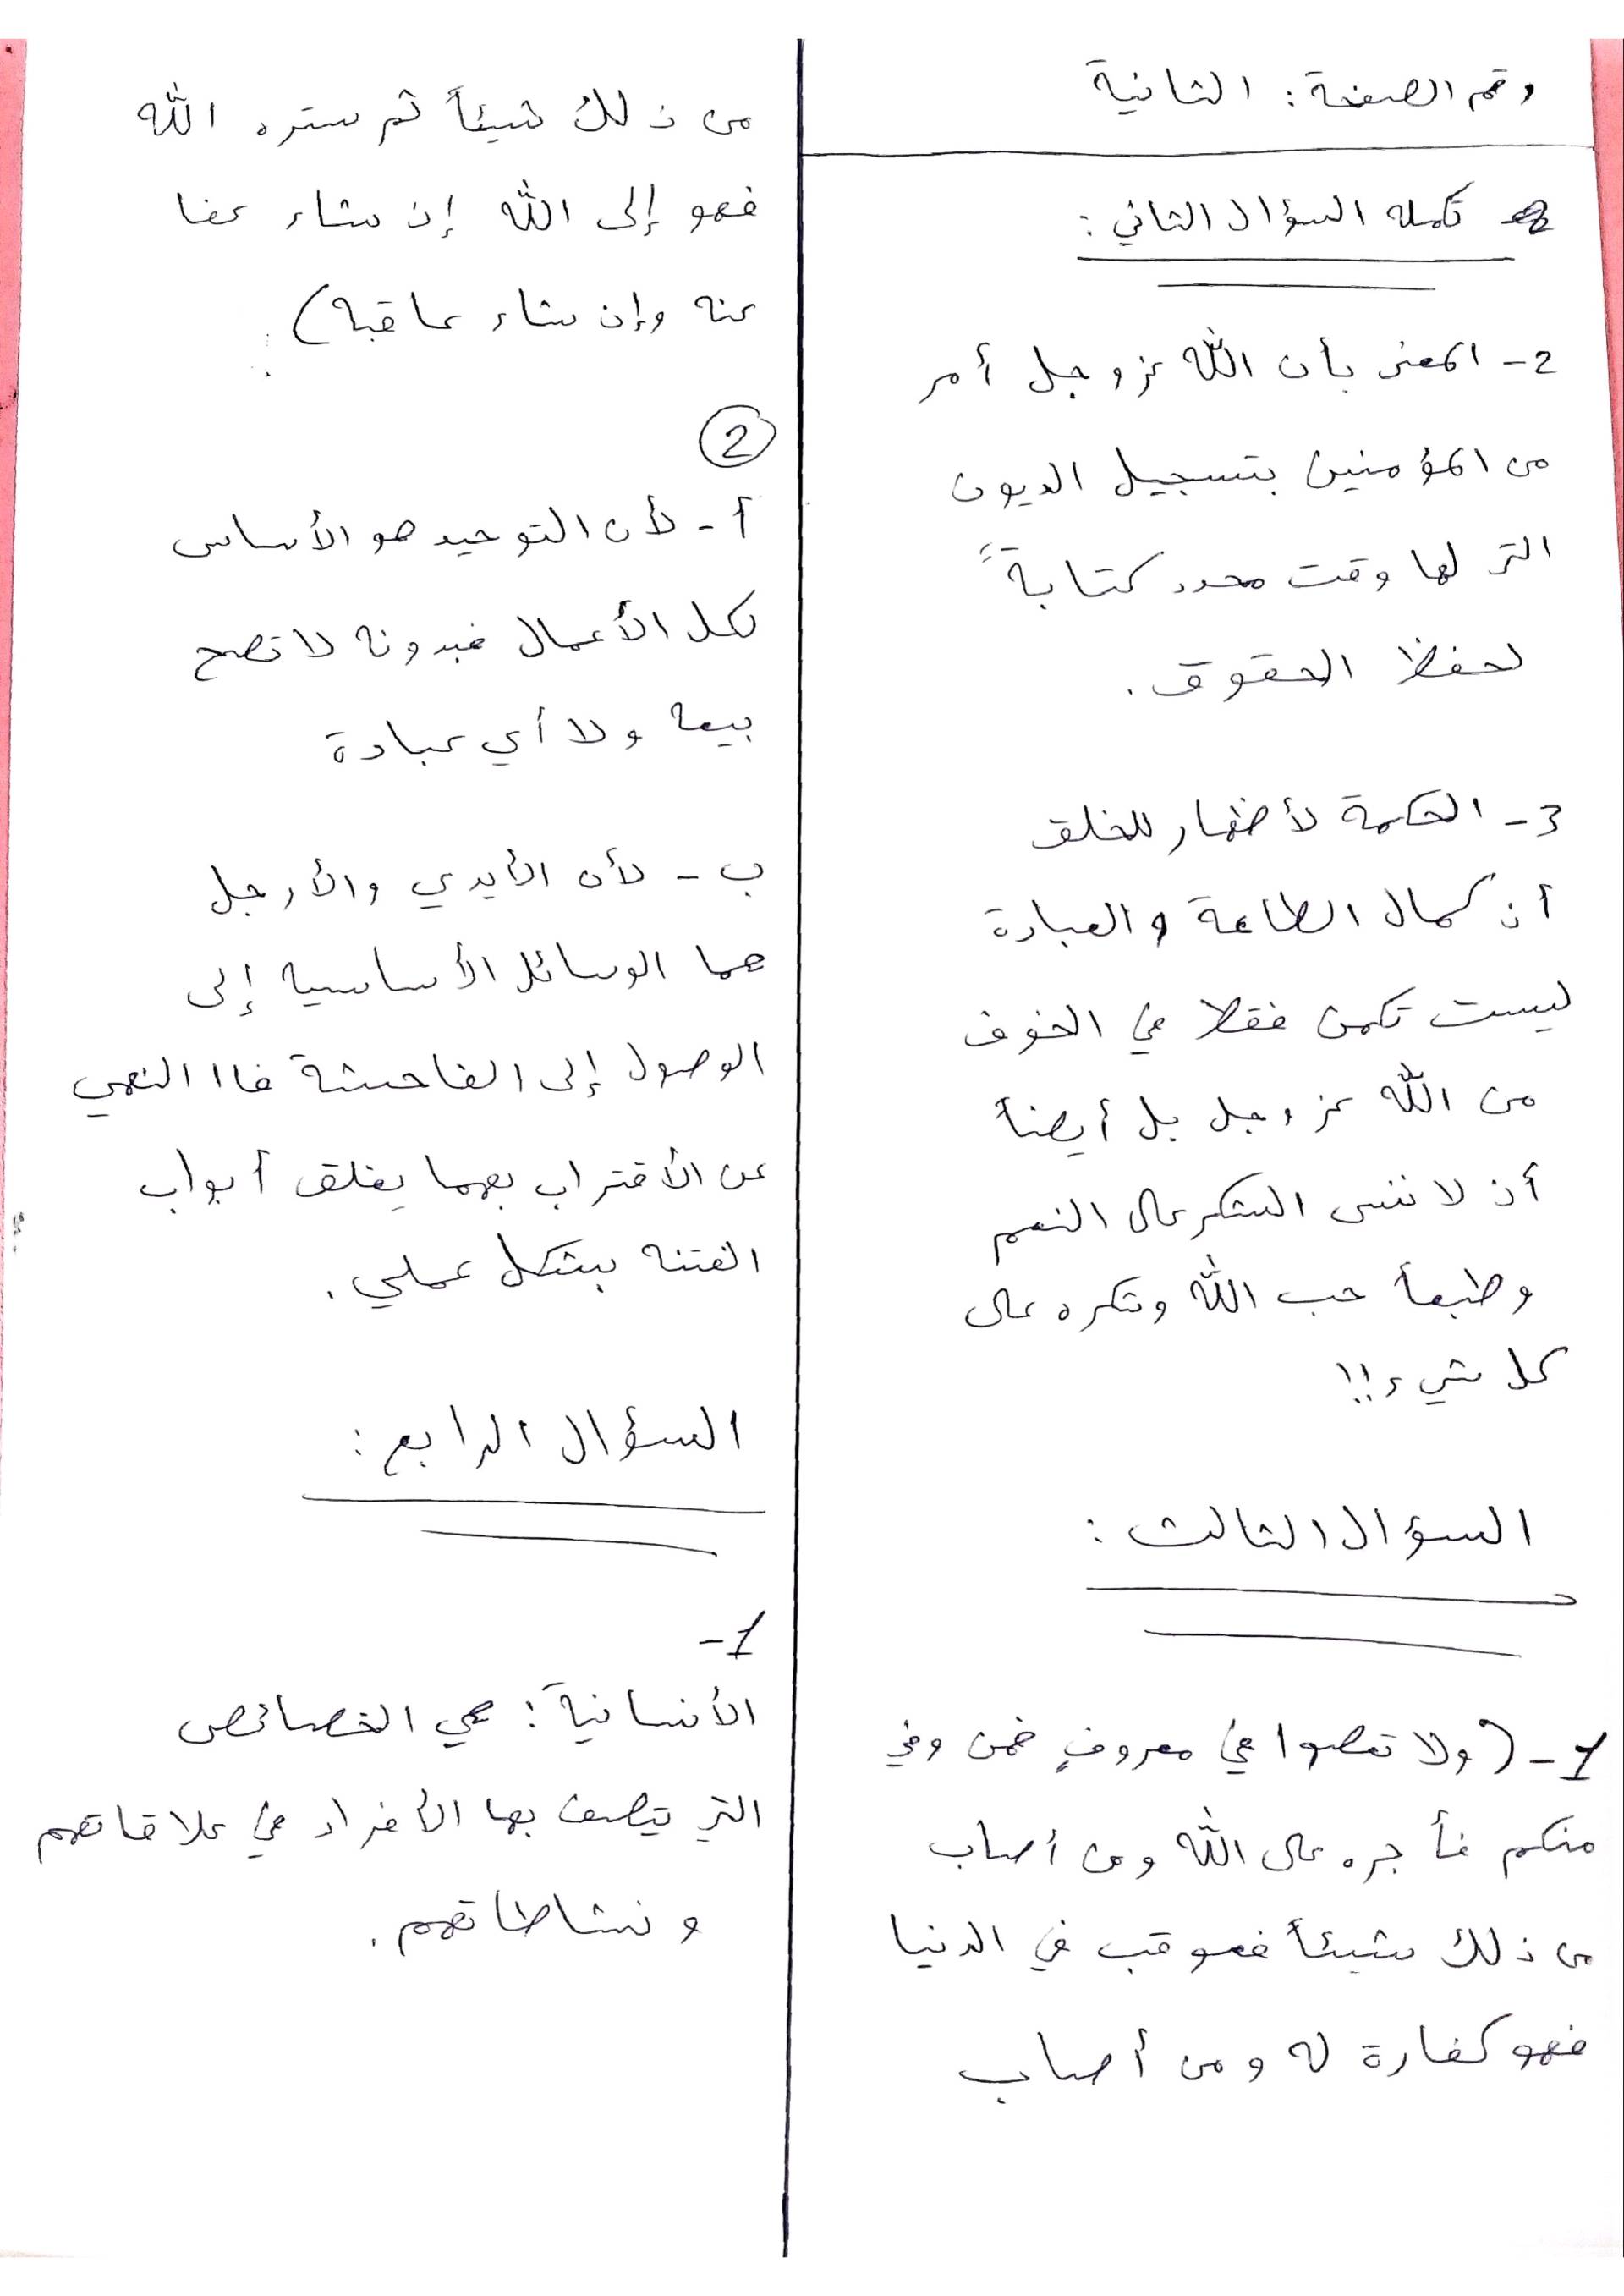 رقم الصفحة: الثانية
تكمله السؤال الثاني:
2- المعنى بأن الله عز وجل أمر
من المؤمنين بتسجيل الديون
التي لها وقت محدد كتابةً
لحفظ الحقوق.
3- الحكمة لأظهار للخلق
أن كمال الطاعة والعبادة
ليست تكمن فقط في الخوف
من الله عز وجل بل أيضاً
أن لا ننسى الشكر على النعم
وطبعاً حب الله وشكره على
كل شيء!!
السؤال الثالث:
1- (ولا تعصوا في معروفٍ فمن وفى
منكم فأجره على الله ومن أصاب
من ذلك شيئاً فعوقب في الدنيا
فهو كفارة له ومن أصاب
من ذلك شيئاً ثم ستره الله
فهو إلى الله إن شاء عفا
عنه وإن شاء عاقبه)
2
أ- لأن التوحيد هو الأساس
لكل الأعمال فبدونه لا تصح
بيعه ولا أي عبادة
ب- لأن الأيدي والأرجل
هما الوسائل الأساسيه إلى
الوصول إلى الفاحشة فاا النهي
عن الأقتراب بهما يغلق أبواب
الفتنه بشكل عملي.
السؤال الرابع:
1-
الأنسانية: هي الخصائص
التي يتصف بها الأفراد في علاقاتهم
ونشاطاتهم.